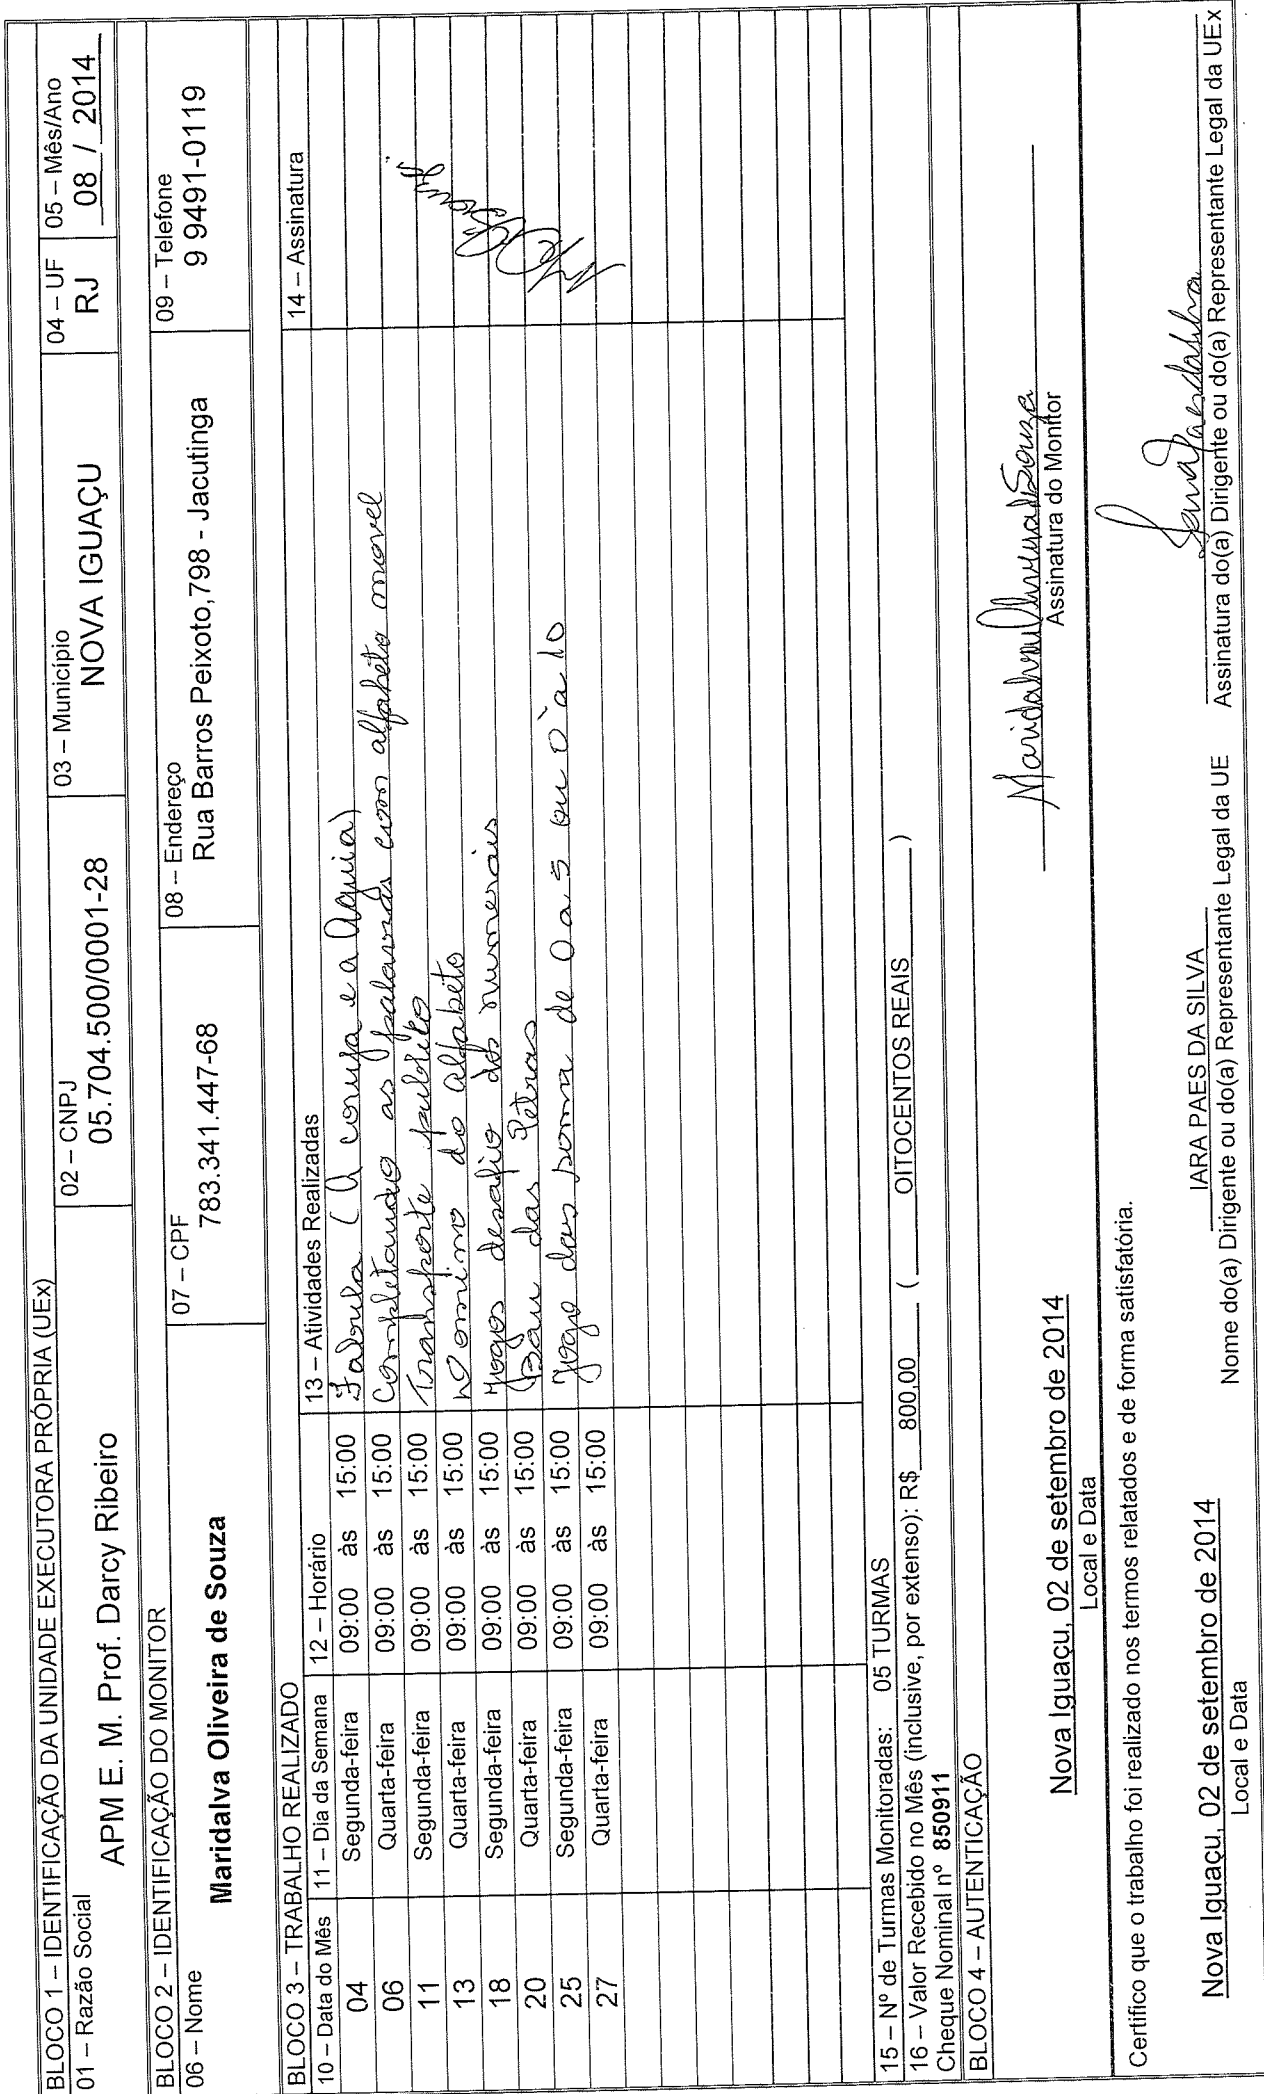 BLOCO 1 – IDENTIFICAÇÃO DA UNIDADE EXECUTORA PRÓPRIA (UEx)
01 – Razão Social 02 – CNPJ 03 – Município 04 – UF 05 – Mês/Ano
APM E. M. Prof. Darcy Ribeiro 05.704.500/0001-28 NOVA IGUAÇU RJ 08 / 2014
BLOCO 2 – IDENTIFICAÇÃO DO MONITOR
06 – Nome 07 – CPF 08 – Endereço 09 – Telefone
Maridalva Oliveira de Souza 783.341.447-68 Rua Barros Peixoto,798 - Jacutinga 9 9491-0119
BLOCO 3 – TRABALHO REALIZADO
10 – Data do Mês 11 – Dia da Semana 12 – Horário 13 – Atividades Realizadas 14 – Assinatura
04 Segunda-feira 09:00 às 15:00 Fabula (A coruja e a Aguia)
06 Quarta-feira 09:00 às 15:00 Completando as palavras com alfabeto movel
11 Segunda-feira 09:00 às 15:00 Transporte publico
13 Quarta-feira 09:00 às 15:00 Domino do alfabeto
18 Segunda-feira 09:00 às 15:00 Jogos desafio dos numerais
20 Quarta-feira 09:00 às 15:00 Bau das letras
25 Segunda-feira 09:00 às 15:00 Jogo das soma de 0 a 5 ou 0 à 10
27 Quarta-feira 09:00 às 15:00
15 – Nº de Turmas Monitoradas: 05 TURMAS
16 – Valor Recebido no Mês (inclusive, por extenso): R$ 800,00 ( OITOCENTOS REAIS )
Cheque Nominal nº 850911
BLOCO 4 – AUTENTICAÇÃO
Nova Iguaçu, 02 de setembro de 2014 Maridalva Oliveira de Souza
Local e Data Assinatura do Monitor
Certifico que o trabalho foi realizado nos termos relatados e de forma satisfatória.
Nova Iguaçu, 02 de setembro de 2014 IARA PAES DA SILVA
Local e Data Nome do(a) Dirigente ou do(a) Representante Legal da UE Assinatura do(a) Dirigente ou do(a) Representante Legal da UEx